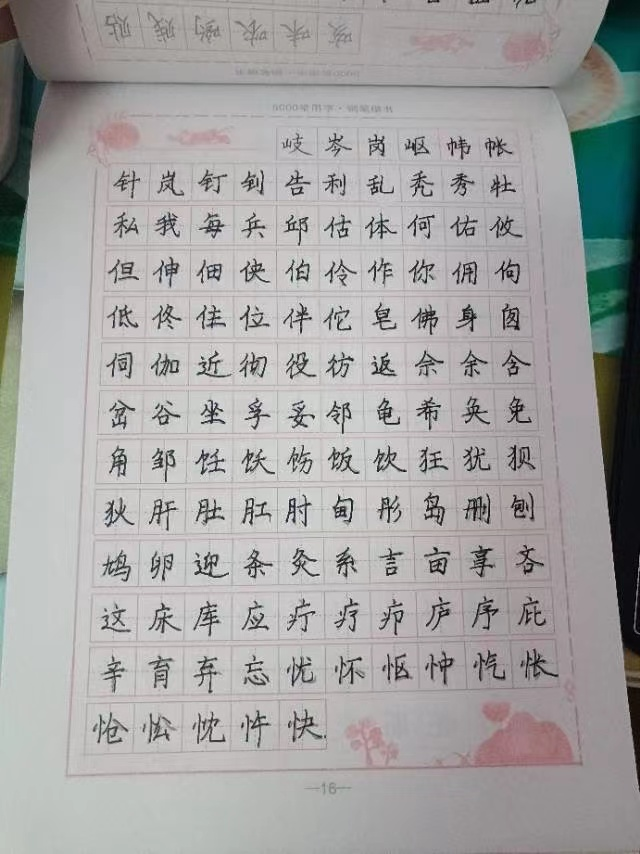 贴 贱 哟 哝 味 咳
5000常用字·钢笔楷书
岐 岑 岗 岖 帏 帐
针 岚 钉 钊 告 利 乱 秃 秀 牡
私 我 每 兵 邱 估 体 何 佑 攸
但 伸 佃 侠 伯 伶 作 你 佣 佝
低 佟 住 位 伴 佗 皂 佛 身 囱
伺 伽 近 彻 役 彷 返 佘 余 含
岔 谷 坐 孚 妥 邻 龟 希 奂 免
角 邹 饪 饫 饬 饭 饮 狂 犹 狈
狄 肝 肚 肛 肘 甸 彤 岛 删 刨
鸠 卵 迎 条 灸 系 言 亩 享 吝
这 床 库 应 疔 疗 疖 庐 序 庇
辛 育 弃 忘 忧 怀 怄 忡 忾 怅
怆 忪 忱 忤 快
—16—